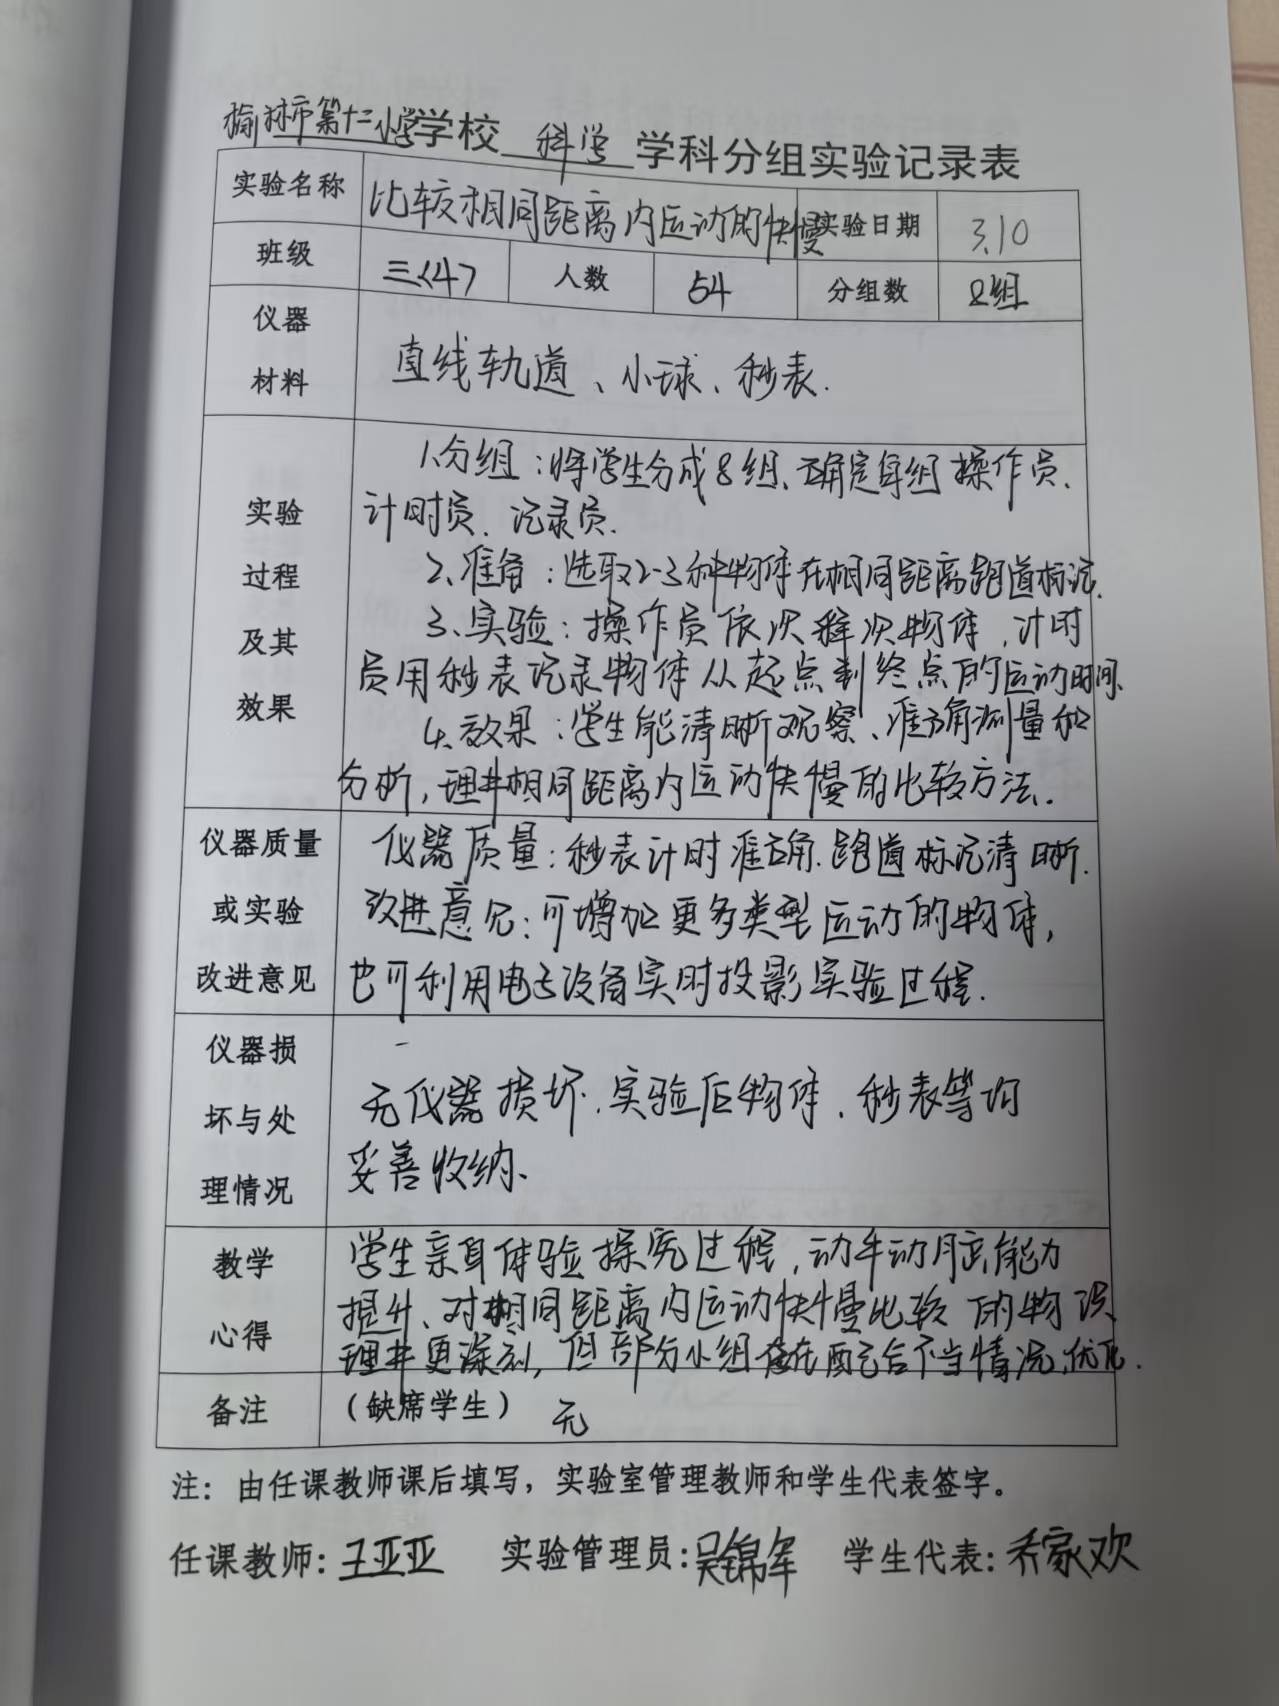 榆林市第十二小学学校 科学 学科分组实验记录表
实验名称 比较相同距离内运动的快慢 实验日期 3.10
班级 三<4> 人数 54 分组数 8组
仪器
材料
直线轨道、小球、秒表.
实验
过程
及其
效果
1.分组:将学生分成8组、确定每组操作员、
计时员、记录员.
2、准备:选取2-3种物体在相同距离跑道标记.
3、实验:操作员依次释次物体,计时
员用秒表记录物体从起点到终点的运动时间、
4、效果:学生能清晰观察、准确测量和
分析,理井相同距离内运动快慢的比较方法.
仪器质量
或实验
改进意见
仪器质量:秒表计时准确.跑道标记清晰.
改进意见:可增加更多类型运动的物体,
也可利用电子设备实时投影实验过程.
仪器损
坏与处
理情况
无仪器损坏.实验后物体、秒表等均
妥善收纳、
教学
心得
学生亲身体验探究过程,动手动脑能力
提升、对相同距离内运动快慢比较的物
理井更深刻,但部分小组存在配合不当情况,优化.
备注
(缺席学生) 无
注:由任课教师课后填写,实验室管理教师和学生代表签字。
任课教师:王亚亚 实验管理员:吴锦军 学生代表:乔家欢